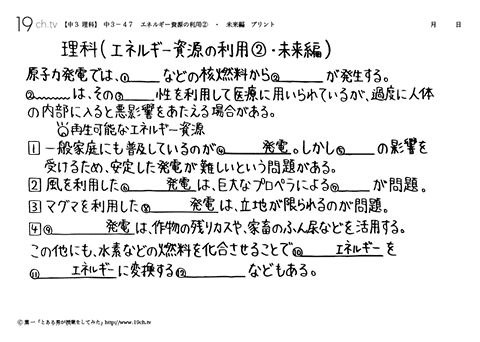 19ch.tv 【中3 理科】 中3-47 エネルギー資源の利用② ・ 未来編 プリント 月 日
理科(エネルギー資源の利用②・未来編)
原子力発電では、①____などの核燃料から②____が発生する。
②____は、その③____性を利用して医療に用いられているが、過度に人体
の内部に入ると悪影響をあたえる場合がある。
再生可能なエネルギー資源
1 一般家庭にも普及しているのが④____発電。しかし⑤____の影響を
受けるため、安定した発電が難しいという問題がある。
2 風を利用した⑥____発電は、巨大なプロペラによる⑦____が問題。
3 マグマを利用した⑧____発電は、立地が限られるのが問題。
4 ⑨____発電は、作物の残りカスや、家畜のふん尿などを活用する。
この他にも、水素などの燃料を化合させることで⑩____エネルギーを
⑪____エネルギーに変換する⑫____などもある。
Ⓒ葉一「とある男が授業をしてみた」http://www.19ch.tv